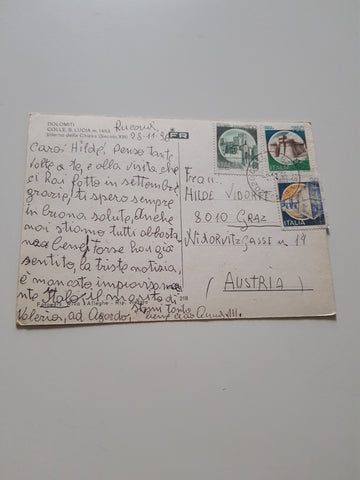 DOLOMITI
COLLE S. LUCIA m. 1453
Interno della Chiesa (Secolo XIII)
28.11.
FR
Cara Hilde, penso tante
volte a te, e alla visita che
ci hai fatto in settembre
grazie, ti spero sempre
in buona salute, anche
noi stiamo tutti abbasta
nza bene, forse hai già
sentito, la triste notizia,
è mancato improvvisame
nte Italo, il marito di
Valeria, ad Agordo,
ITALIA
ITALIA
Frau:
HILDE
8010 GRAZ
Nº 19
(AUSTRIA)